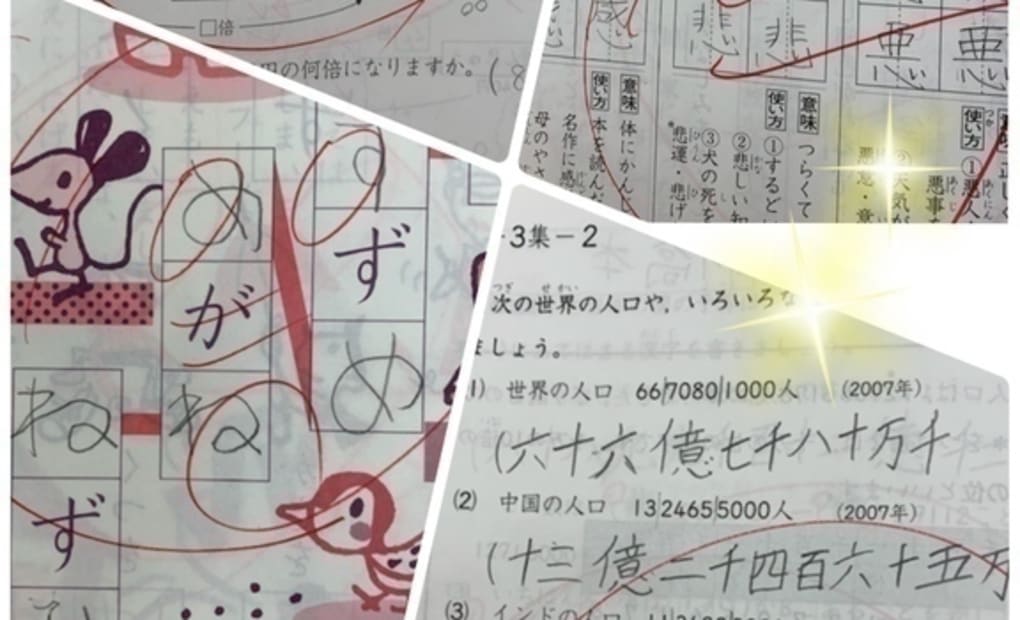 □倍
円の何倍になりますか。(
すずめ
めがね
ねず
感
悲 悲
悪 悪
使い方 ①悪人
悪事を
②天気が
意味 つらくて
使い方 ①するど
②悲しい知
③犬の死を
*悲運・悲げ
意味 体にかんじ
使い方 本を読んだ
名作に感
母のやさ
3集－2
次の世界の人口や，いろいろな
ましょう。
(1) 世界の人口 66|7080|1000人 (2007年)
(六十六億七千八十万千
(2) 中国の人口 13|2465|5000人 (2007年)
(十三億二千四百六十五万
(3) インドの人口